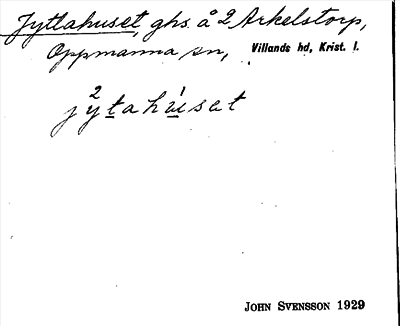 Jyttahuset, ghs. å 2 Arkelstorp,
Oppmanna sn, Villands hd, Krist. l.
j2ytahu̇set
JOHN SVENSSON 1929